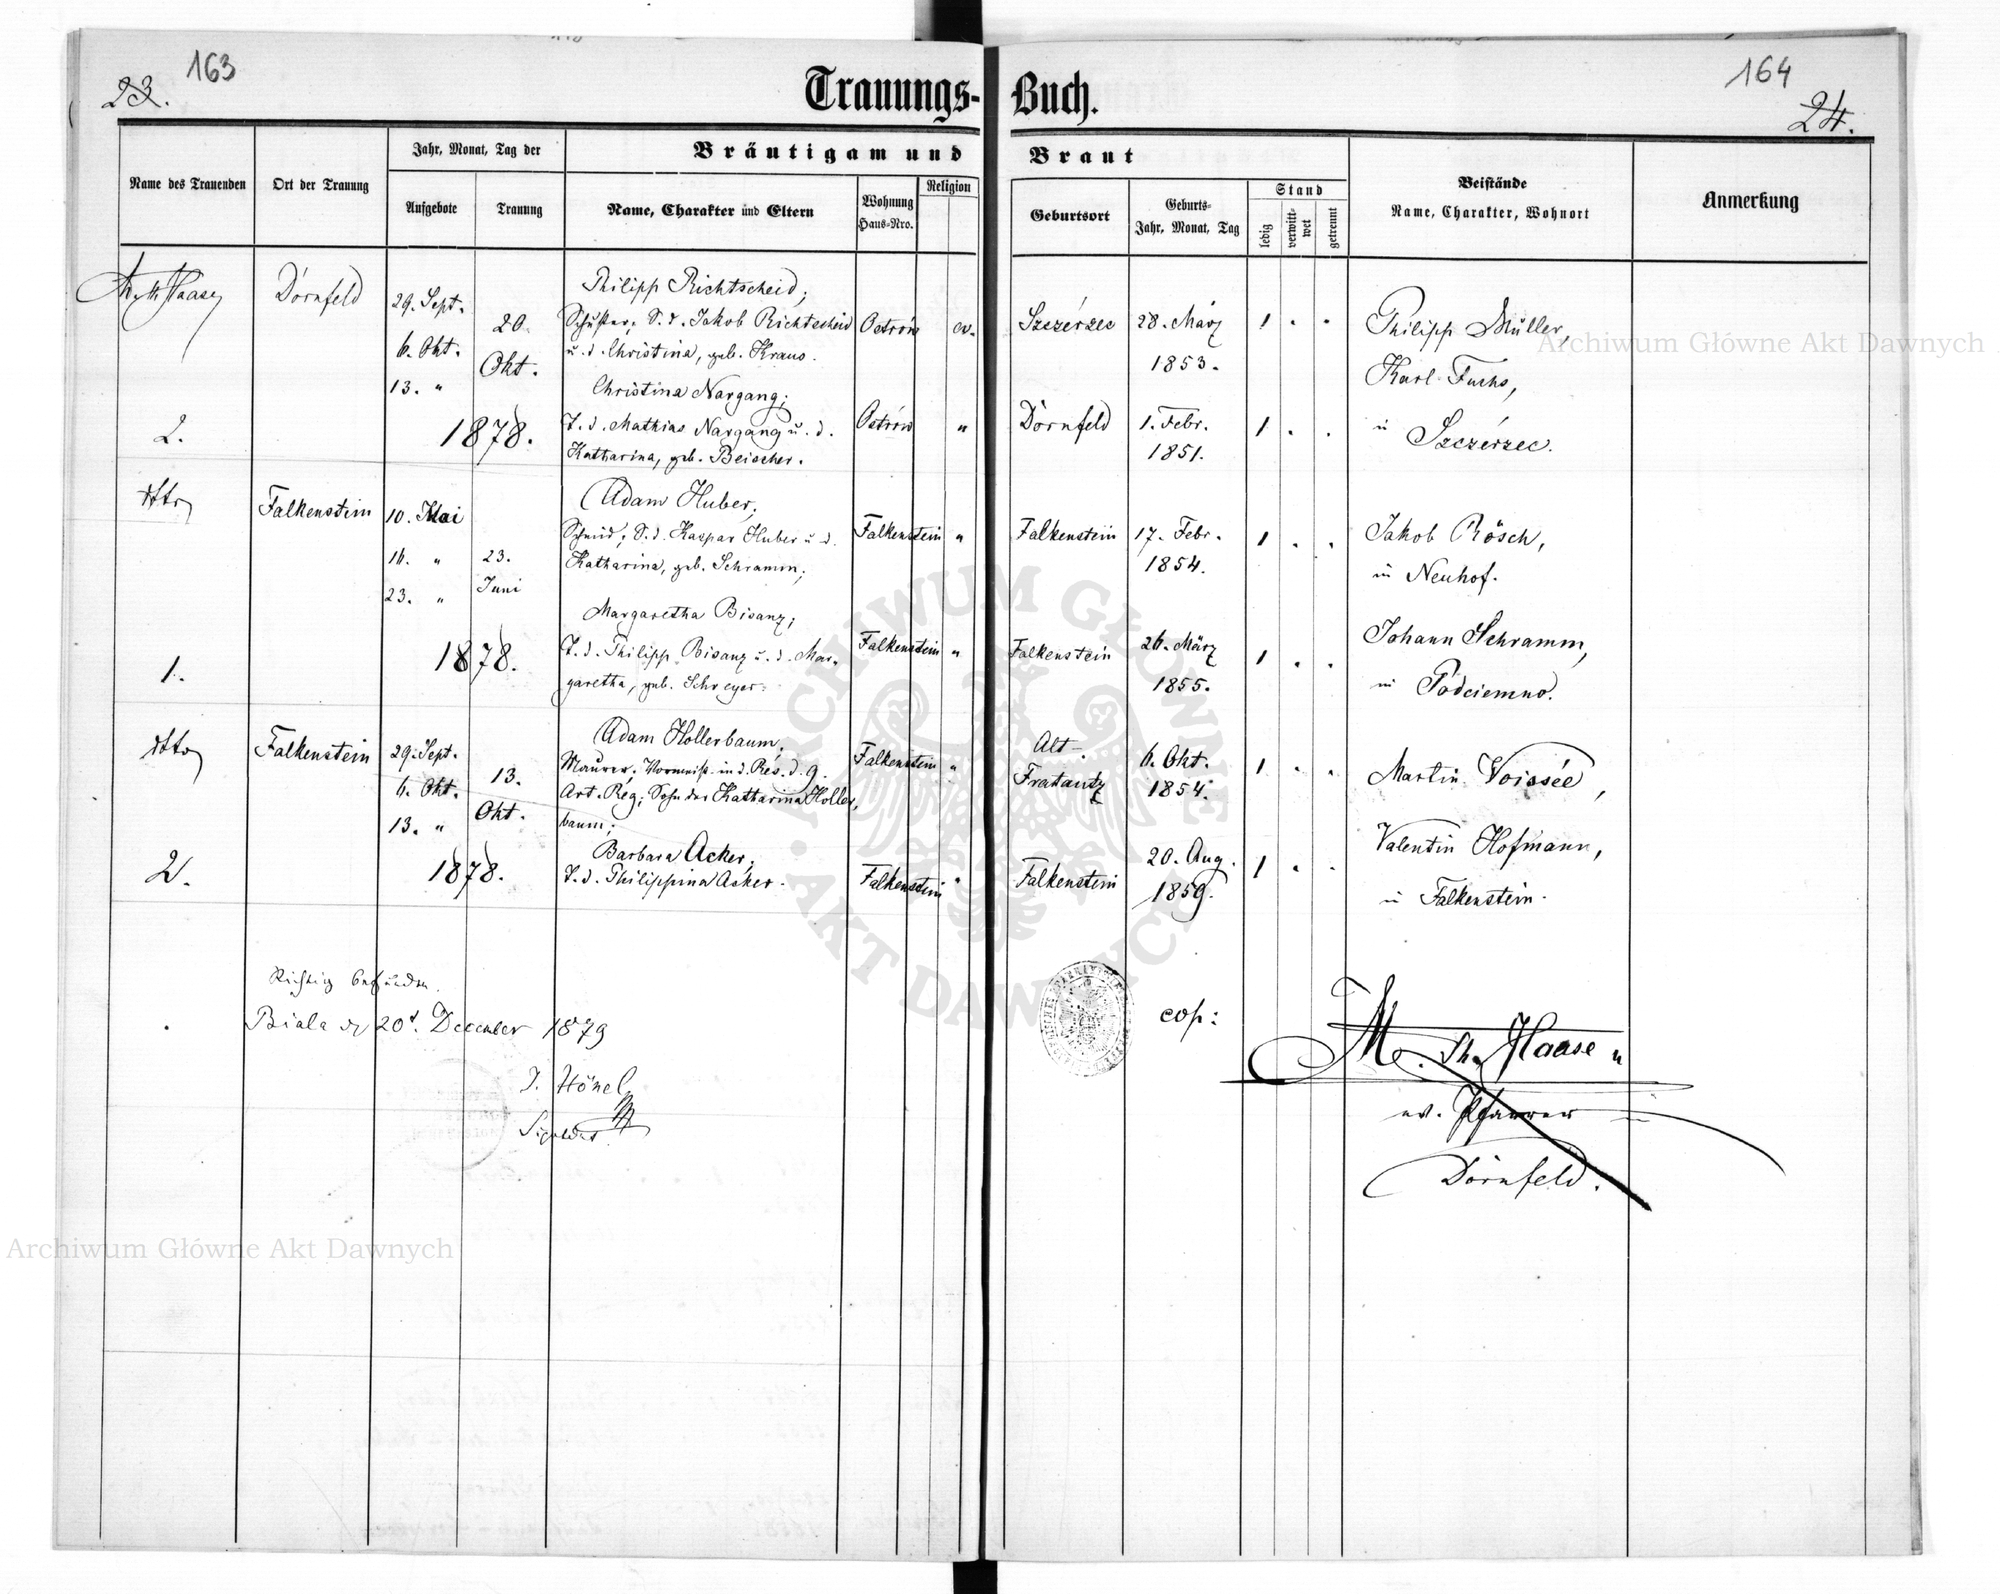 163
23.
Trauungs-Buch.
164
24.
Name des Trauenden
Ort der Trauung
Jahr, Monat, Tag der
Aufgebote
Trauung
Bräutigam und Braut
Name, Charakter und Eltern
Wohnung
Haus-Nro.
Religion
Geburtsort
Geburts-
Jahr, Monat, Tag
Stand
ledig
verwitt-
wet
getrennt
Beistände
Name, Charakter, Wohnort
Anmerkung
Haase
Dornfeld
29. Sept.
6. Okt.
13. "
20.
Okt.
1878.
2.
Philipp Richtscheid;
Schuster, S. d. Jakob Richtscheid
u. d. Christina, geb. Kraus.
Ostrów
ev.
Szczérzec
28. März
1853.
1 . .
Philipp Müller,
Karl Fuchs,
in Szczérzec.
Christina Nargang;
T. d. Mathias Nargang u. d.
Katharina, geb. Beischer.
Ostrów
"
Dornfeld
1. Febr.
1851.
1 . .
dtto
Falkenstein
10. Mai
16. "
23. "
23.
Juni
1878.
1.
Adam Huber;
Schmid, S. d. Kaspar Huber u. d.
Katharina, geb. Schramm;
Falkenstein
"
Falkenstein
17. Febr.
1854.
1 . .
Jakob Rösch,
in Neuhof.
Margaretha Bisanz;
T. d. Philipp Bisanz u. d. Mar-
garetha, geb. Schreyer.
Falkenstein
"
Falkenstein
26. März
1855.
1 . .
Johann Schramm,
in Podciemno.
dtto
Falkenstein
29. Sept.
6. Okt.
13. "
13.
Okt.
1878.
2.
Adam Hollerbaum;
Maurer, Vormeist. in d. Res. d. 9.
Art. Reg; Sohn der Katharina Holler,
baum;
Falkenstein
"
Alt-
Fratautz
6. Okt.
1854.
1 . .
Martin Voissée,
Valentin Hofmann,
in Falkenstein.
Barbara Acker;
T. d. Philippina Acker.
Falkenstein
"
Falkenstein
20. Aug.
1859.
1 . .
Richtig befunden.
Biala 20t. December 1879
J. Hönel
cop:
Haase
ev. Pfarrer
Dornfeld.
ARCHIWUM GŁÓWNE AKT DAWNYCH
Archiwum Główne Akt Dawnych
Archiwum Główne Akt Dawnych